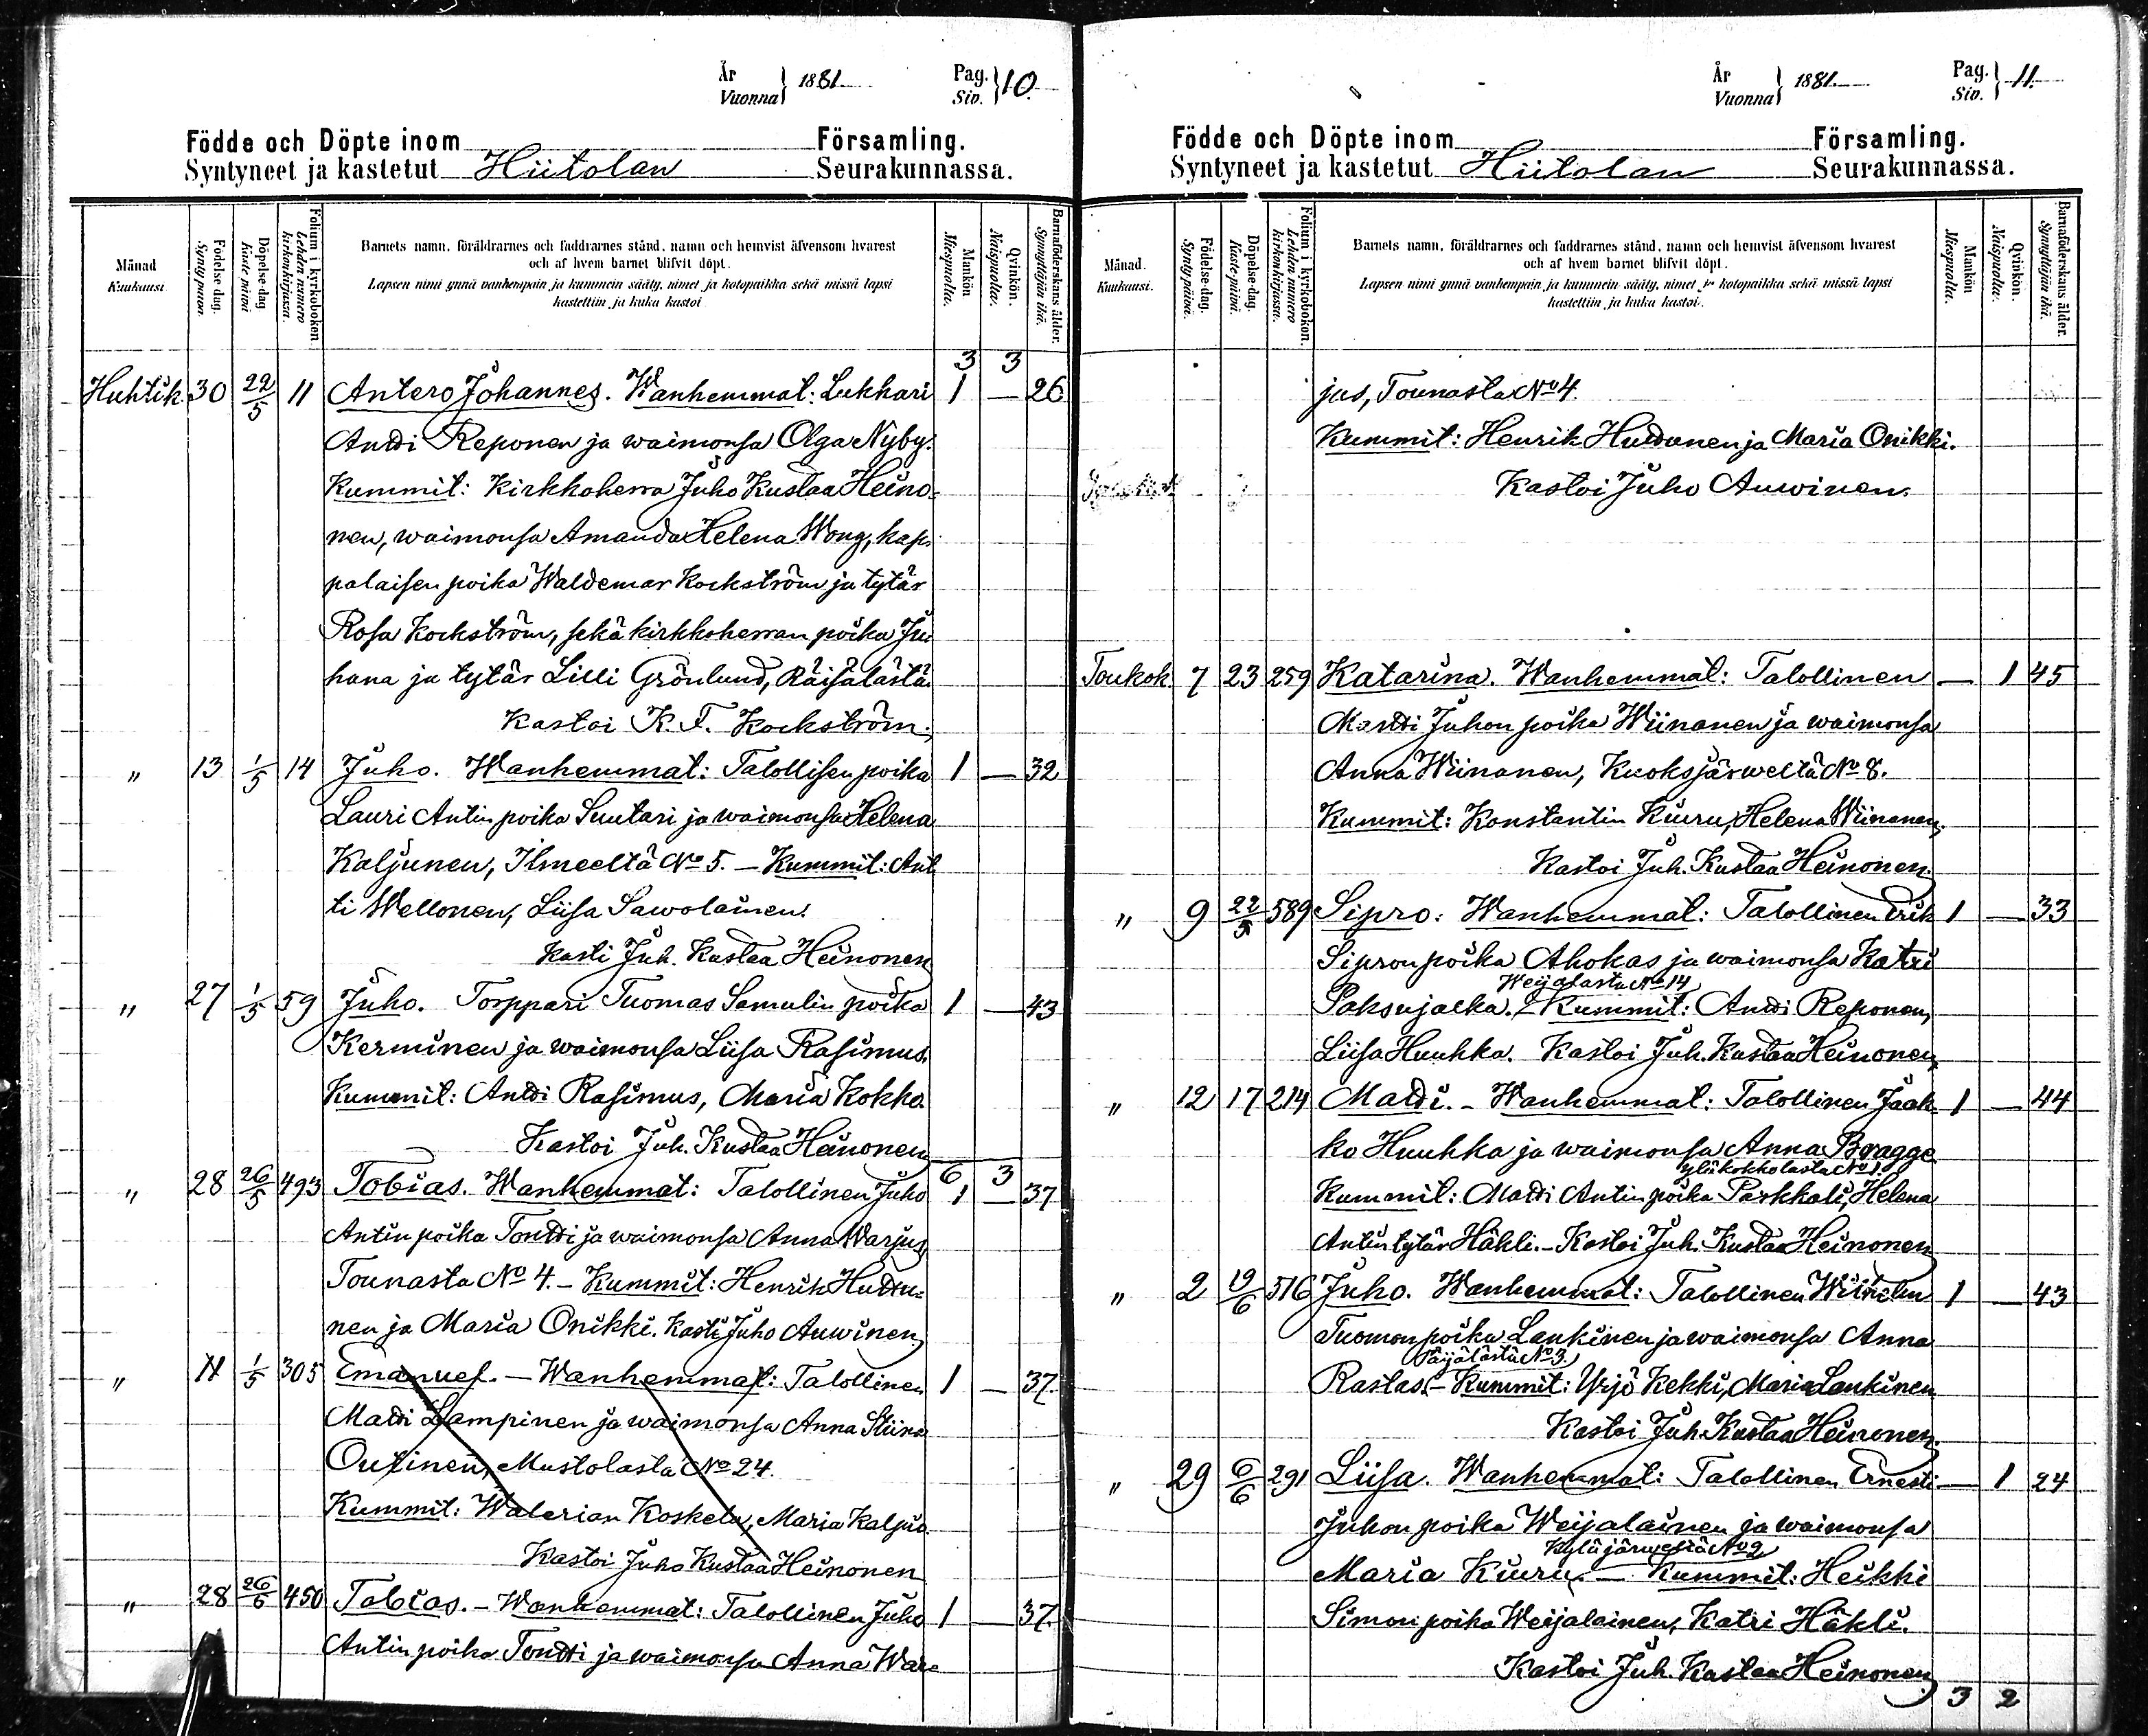 År
Vuonna } 1881. Pag.
Siv. } 10.
Födde och Döpte inom Församling.
Syntyneet ja kastetut Hiitolan Seurakunnassa.
Månad
Kuukausi
Födelse dag.
Synty päivä.
Döpelse-dag
Kaste päivä
Folium i kyrkoboken
Lehden numero
kirkonkirjassa.
Barnets namn, föräldrarnes och faddrarnes stånd, namn och hemvist äfvensom hvarest
och af hvem barnet blifvit döpt.
Lapsen nimi ynnä vanhempain ja kummein sääty, nimet ja kotopaikka sekä missä lapsi
kastettiin ja kuka kastoi
Mankön
Miespuolta.
Qvinkön.
Naispuolta.
Barnaföderskans ålder.
Synnyttäjän ikä.
3 3
Huhtik. 30 22/5 11 Antero Johannes. Wanhemmat: Lukkari 1 — 26
Antti Reponen ja waimonsa Olga Nyby.
Kummit: Kirkkoherra Juho Kustaa Heino-
nen, waimonsa Amanda Helena Wong, kap-
palaisen poika Waldemar Kockström ja tytär
Rosa Kockström, sekä kirkkoherran poika Ju
hana ja tytär Lilli Grönlund, Räisälästä.
Kastoi K. F. Kockström.
" 13 1/5 14 Juho. Wanhemmat: Talollisen poika 1 — 32
Lauri Antin poika Suutari ja waimonsa Helena
Kaljunen, Ilmeeltä No 5. — Kummit: Ant
ti Wellonen, Liisa Sawolainen.
Kasti Juh. Kustaa Heinonen
" 27 1/5 59 Juho. Torppari Tuomas Samulin poika 1 — 43
Kerminen ja waimonsa Liisa Rasimus.
Kummit: Antti Rasimus, Maria Kokko.
Kastoi Juh. Kustaa Heinonen
6 3
" 28 26/5 493 Tobias. Wanhemmat: Talollinen Juho 1 — 37
Antin poika Tontti ja waimonsa Anna Warjus,
Tounasta No 4. — Kummit: Henrik Huttu-
nen ja Maria Onikki. Kasti Juho Auwinen.
" 11 1/5 305 Emanuel. — Wanhemmat: Talollinen 1 — 37.
Matti Lampinen ja waimonsa Anna Stiina
Outinen, Mustolasta No 24.
Kummit: Walerian Koskela, Maria Kaljus.
Kastoi Juho Kustaa Heinonen
" 28 26/6 450 Tobias. — Wanhemmat: Talollinen Juho 1 — 37.
Antin poika Tontti ja waimonsa Anna War-
År
Vuonna } 1881. Pag.
Siv. } 11.
Födde och Döpte inom Församling.
Syntyneet ja kastetut Hiitolan Seurakunnassa.
Månad.
Kuukausi.
Födelse-dag.
Synty-päivä.
Döpelse-dag.
Kaste-päivä.
Folium i kyrkoboken.
Lehden numero
kirkonkirjassa.
Barnets namn, föräldrarnes och faddrarnes stånd, namn och hemvist äfvensom hvarest
och af hvem barnet blifvit döpt.
Lapsen nimi ynnä vanhempain ja kummein sääty, nimet ja kotopaikka sekä missä lapsi
kastettiin ja kuka kastoi.
Mankön
Miespuolta.
Qvinkön.
Naispuolta.
Barnaföderskans ålder.
Synnyttäjän ikä.
jus, Tounasta No 4.
Kummit: Henrik Huttunen ja Maria Onikki.
Kastoi Juho Auwinen.
Toukok. 7 23 259 Katarina. Wanhemmat: Talollinen — 1 45
Martti Juhon poika Wiinanen ja waimonsa
Anna Wiinanen, Kuoksjärweltä No 8.
Kummit: Konstantin Kiuru, Helena Wiinanen.
Kastoi Juh. Kustaa Heinonen.
" 9 22/5 589 Sipro: Wanhemmat: Talollinen Erik 1 — 33
Sipron poika Ahokas ja waimonsa Katri
Weijalasta No 14
Paksujalka. — Kummit: Antti Reponen,
Liisa Huuhka. Kastoi Juh. Kustaa Heinonen.
" 12 17 214 Matti. — Wanhemmat: Talollinen Jaak 1 — 44
ko Huuhka ja waimonsa Anna Bragge
ylikokkolasta No 1
Kummit: Matti Antin poika Parkkali, Helena
Antin tytär Häkli. — Kastoi Juh. Kustaa Heinonen
" 2 19/6 516 Juho. Wanhemmat: Talollinen Wilhelm 1 — 43
Tuomon poika Lankinen ja waimonsa Anna
No 3.
Rastas. — Kummit: Yrjö Kekki, Maria Lankinen
Kastoi Juh. Kustaa Heinonen.
" 29 6/6 291 Liisa. Wanhemmat: Talollinen Ernesti — 1 24
Juhon poika Weijalainen ja waimonsa
Kyläjärweltä No 2
Maria Kiuru. — Kummit: Heikki
Simon poika Weijalainen, Katri Häkli.
Kastoi Juh. Kustaa Heinonen.
3 2